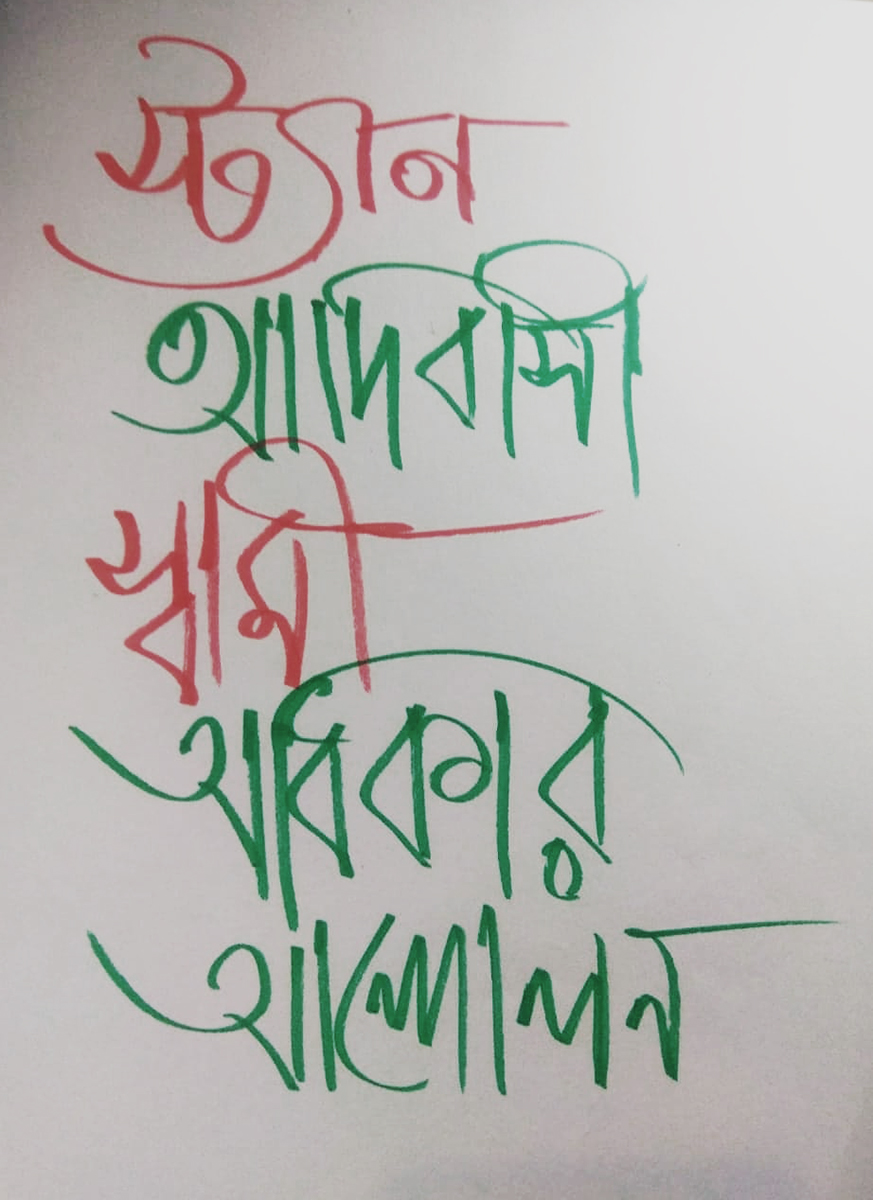 স্ট্যান
আদিবাসী
স্বামী
অধিকার
আন্দোলন